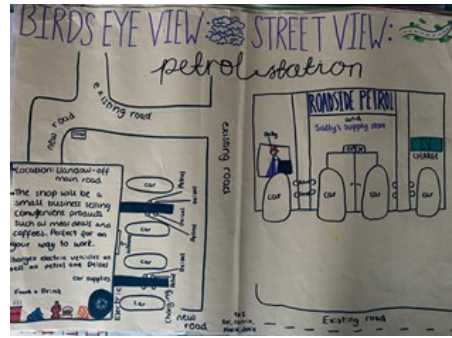 BIRDS EYE VIEW:
STREET VIEW:
petrol station
existing road
new road
existing road
Location:
off
main road
The shop will be a
small business selling
convenient products
such as meal deals and
coffees. Perfect for on
your way to work.
electric vehicles as
well as petrol and Deisel
car supplies
Food + Drink
car
car
car
car
Petrol
Deisel
Petrol
Deisel
Electric
Charging
new
road
ROADSIDE PETROL
and
Sally's supply store
OPEN
Sally
CHARGE
car
car
car
car
Existing road